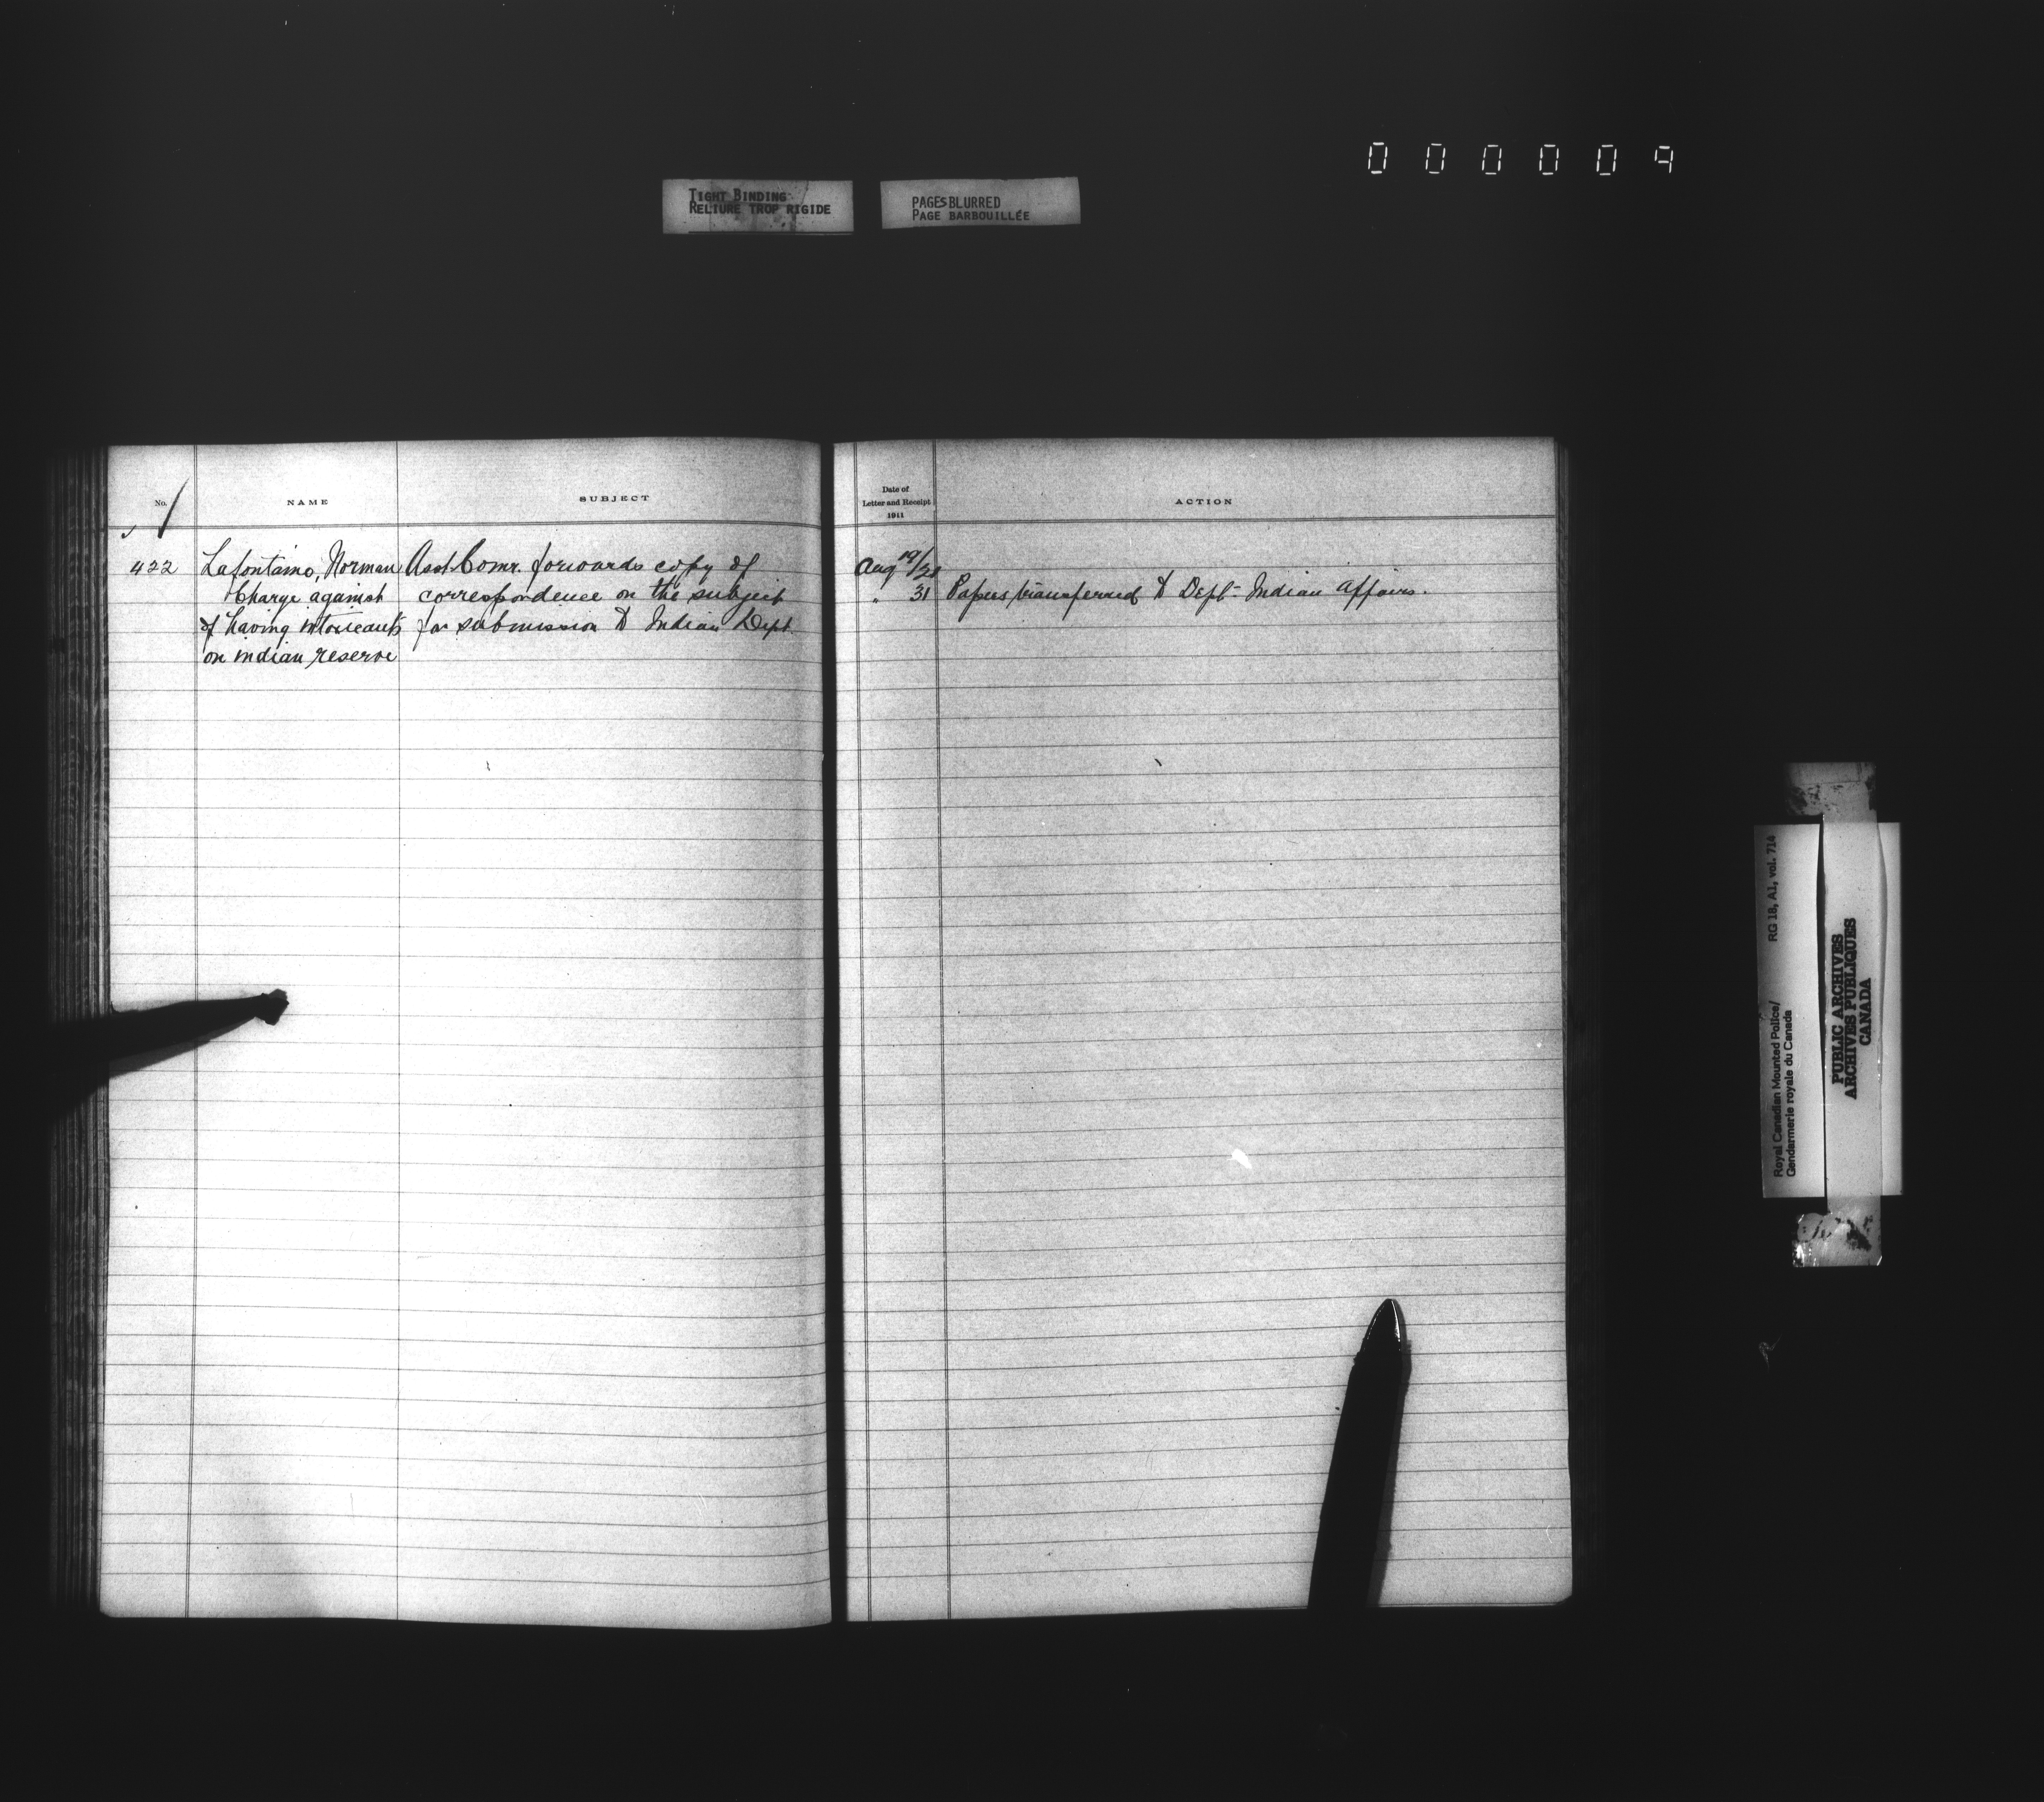 000009
TIGHT BINDING
RELIURE TROP RIGIDE
PAGES BLURRED
PAGE BARBOUILLÉE
No.
NAME
SUBJECT
Date of
Letter and Receipt
1911
ACTION
422
Lafontaine, Norman
Charge against
of having intoxicants
on indian reserve
Asst. Comr. forwards copy of
correspondence on the subject
for submission to Indian Dept.
Aug 19/28
" 31
Papers transferred to Dept. Indian Affairs.
Royal Canadian Mounted Police/
Gendarmerie royale du Canada
RG 18, A1, vol. 714
PUBLIC ARCHIVES
ARCHIVES PUBLIQUES
CANADA